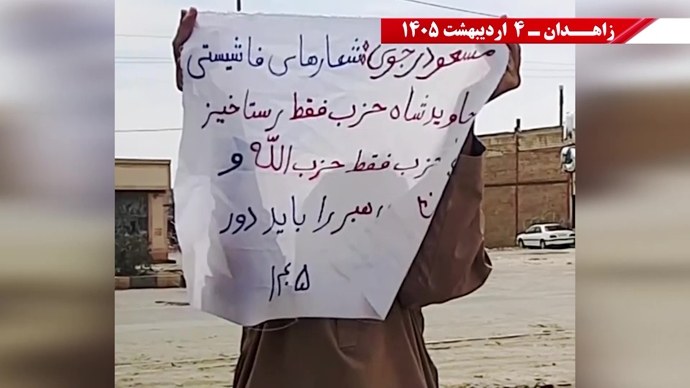 زاهـدان ـ ۴ اردیبهشت ۱۴۰۵
مسعود رجوی: شعارهای فاشیستی
جاوید شاه حزب فقط رستاخیز
حزب فقط حزب الله و
رهبر را باید دور